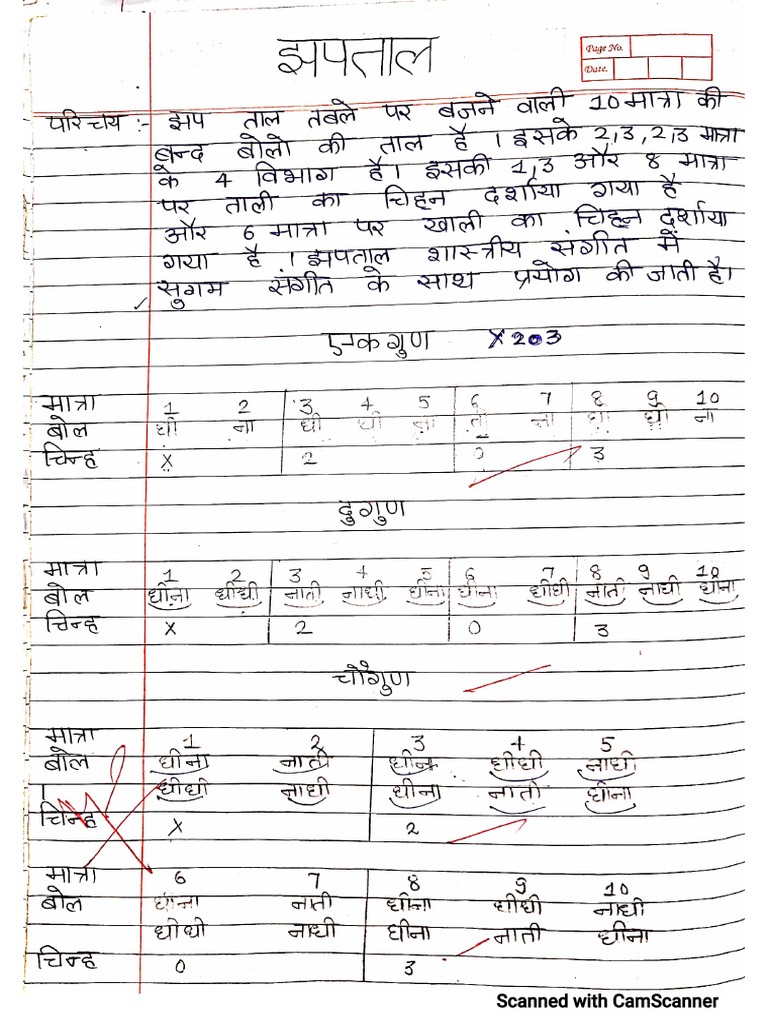 झपताल
Page No.
Date.
परिचय :- झप ताल तबले पर बजने वाली 10 मात्रा की
बन्द बोलो की ताल है । इसके 2,3,2,3 मात्रा
के 4 विभाग है। इसकी 1,3 और 8 मात्रा
पर ताली का चिहन दर्शाया गया है
और 6 मात्रा पर खाली का चिहन दर्शाया
गया है । झपताल शास्त्रीय संगीत में
सुगम संगीत के साथ प्रयोग की जाती है।
एकगुण X203
मात्रा 1 2 3 4 5 6 7 8 9 10
बोल धी ना धी धी ना ती ना धी धी ना
चिन्ह X 2 0 3
दुगुण
मात्रा 1 2 3 4 5 6 7 8 9 10
बोल धीना धीधी नाती नाधी धीना धीना धीधी नाती नाधी धीना
चिन्ह X 2 0 3
चौगुण
मात्रा 1 2 3 4 5
बोल धीना नाती धीना धीधी नाधी
धीधी नाधी धीना नाती धीना
चिन्ह X 2
मात्रा 6 7 8 9 10
बोल धीना नाती धीना धीधी नाधी
धीधी नाधी धीना नाती धीना
चिन्ह 0 3
Scanned with CamScanner